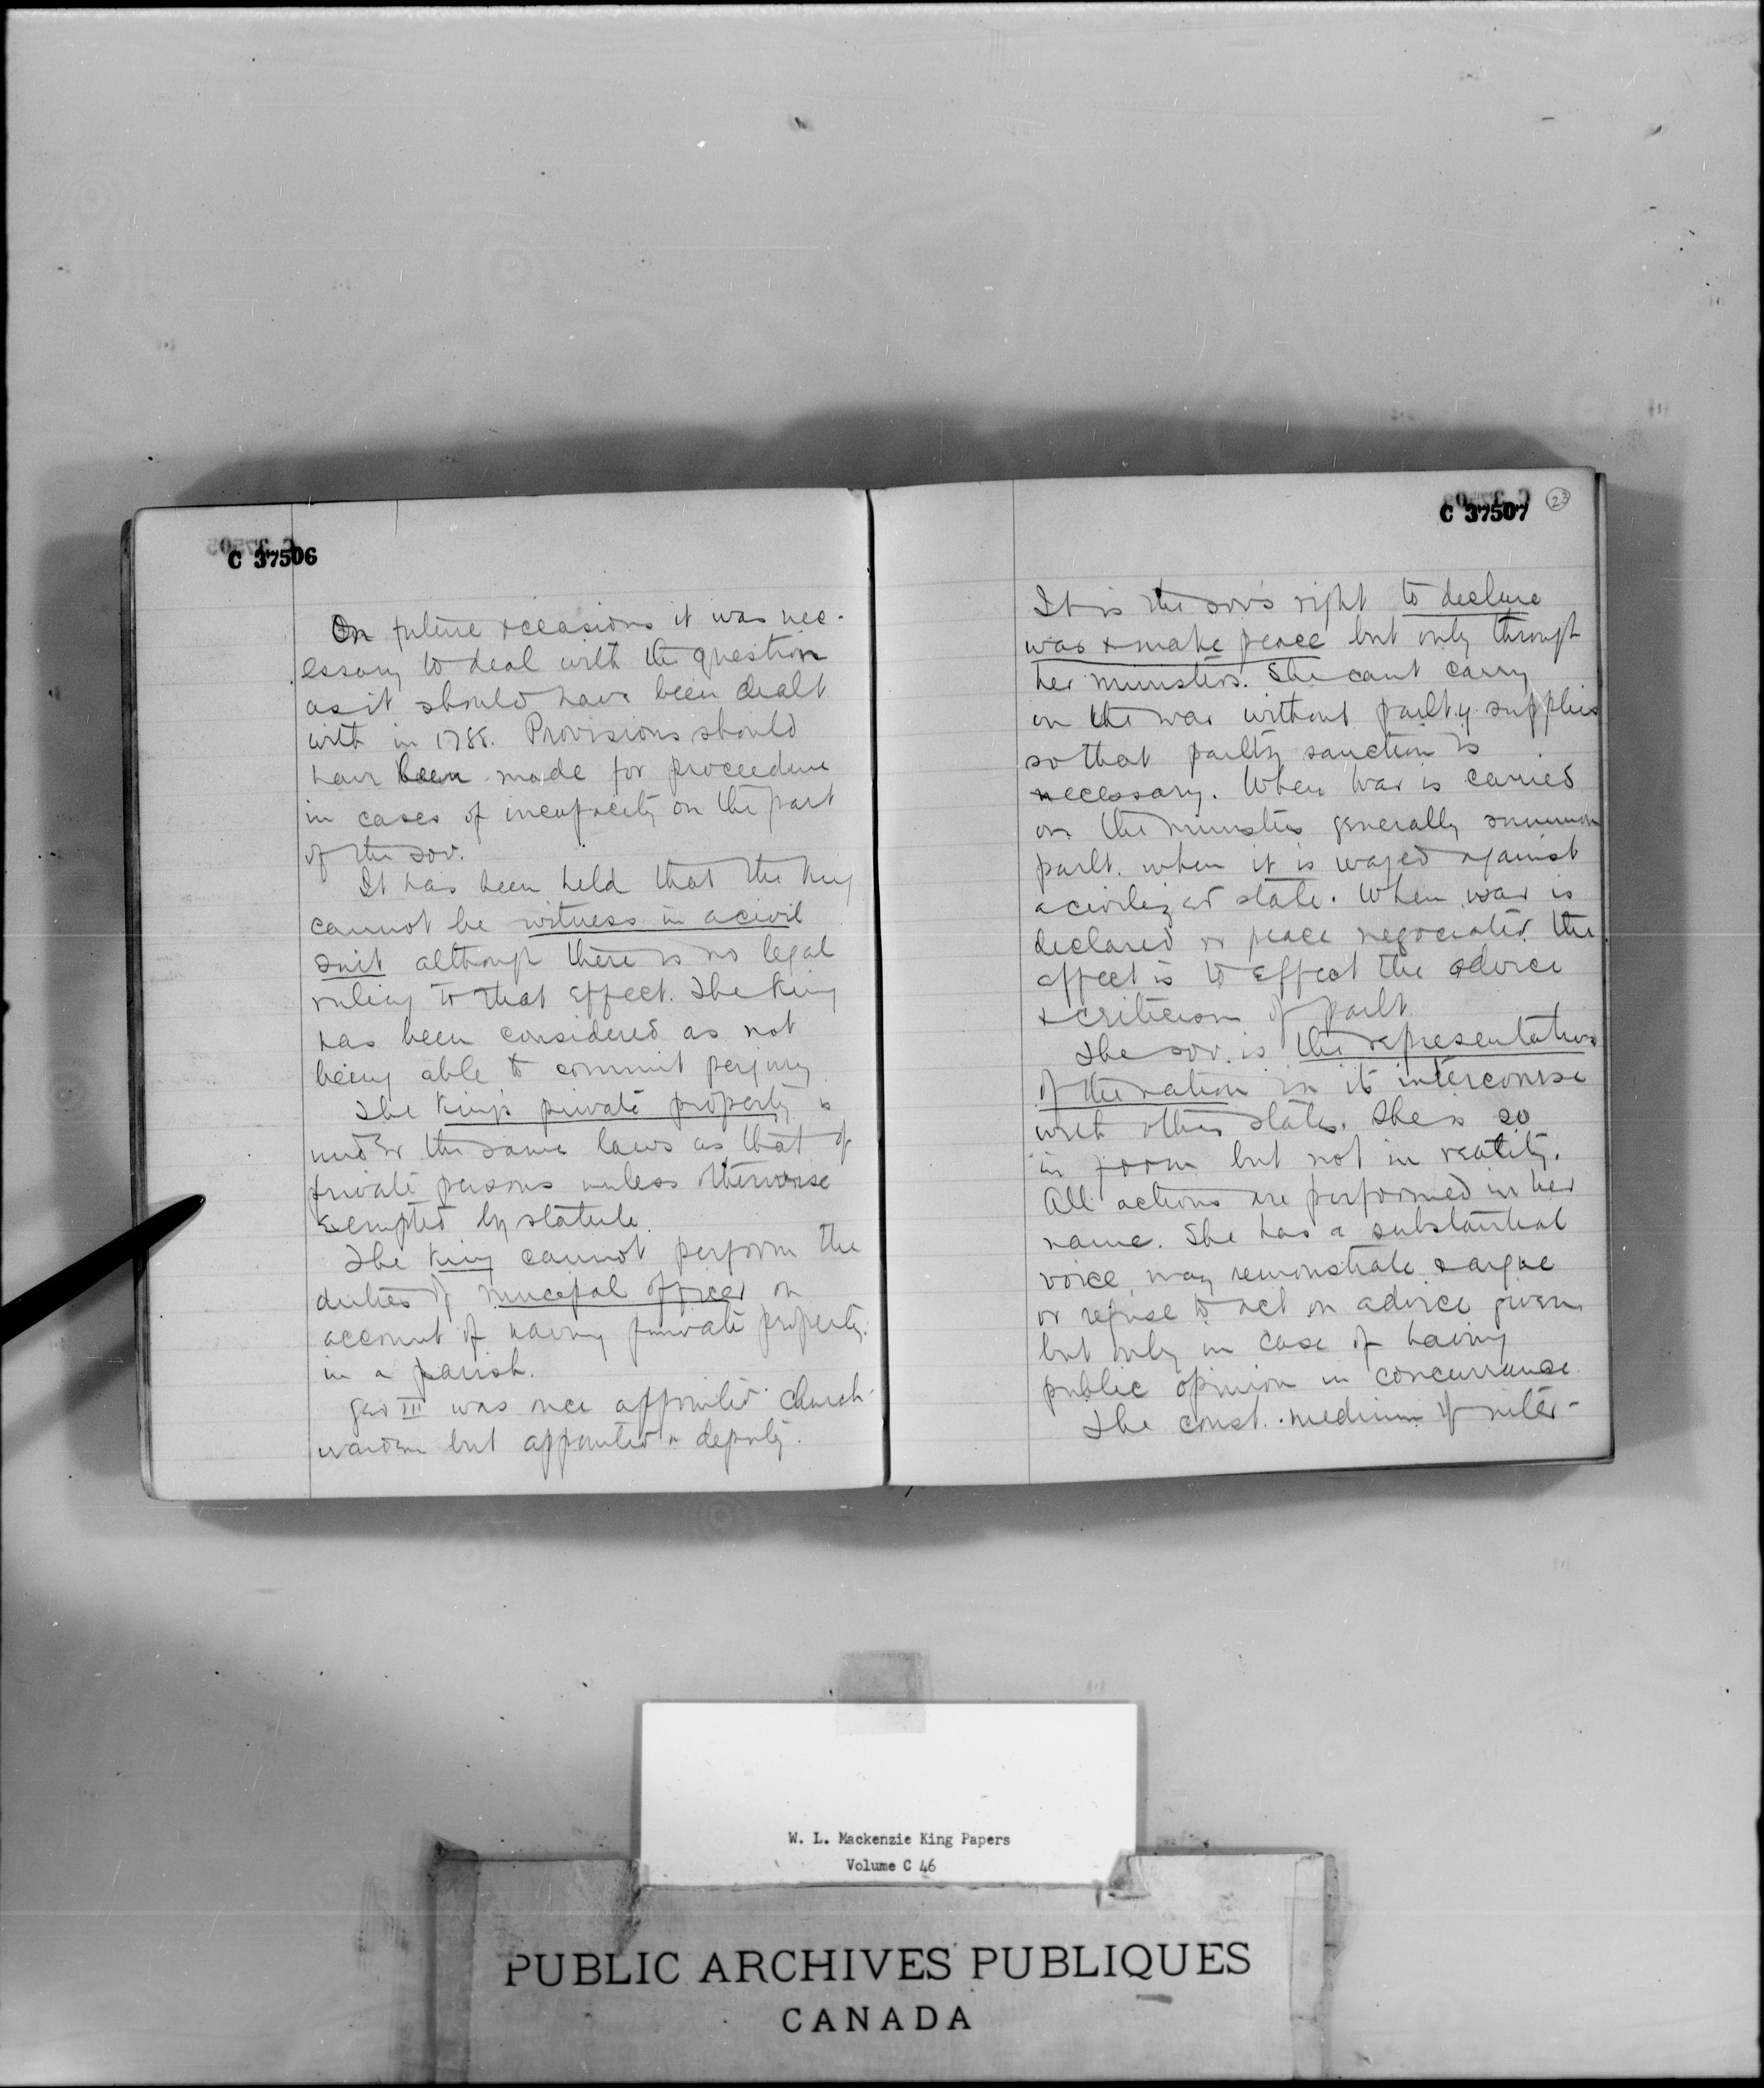 C 37506
On future occasions it was nec-
essary to deal with the question
as it should have been dealt
with in 1788. Provisions should
have been made for proceedure
in cases of incapacity on the part
of the sov.
It has been held that the King
cannot be witness in a civil
suit although there is no legal
ruling to that effect. The King
has been considered as not
being able to commit perjury
The King's private property is
under the same laws as that of
private persons unless otherwise
exempted by statute.
The King cannot perform the
duties of municipal officer on
account of having private property
in a parish.
Geo III was once appointed church-
warden but appointed a deputy.
C 37507 23
It is the sov's right to declare
war & make peace but only through
her ministers. She cant carry
on the war without parlty supplies
so that parlty sanction is
necessary. When war is carried
on the ministers generally summon
parlt. when it is waged against
a civilized state. When war is
declared or peace negociated the
affect is to effect the advice
& criticism of parlt.
The sov. is the representative
of the nation in its intercourse
with other states. She is so
in form but not in reality.
All actions are performed in her
name. She has a substantial
voice may remonstrate & argue
or refuse to act on advice given
but only in case of having
public opinion in concurrance.
The const. medium of inter-
W. L. Mackenzie King Papers
Volume C 46
PUBLIC ARCHIVES PUBLIQUES
CANADA